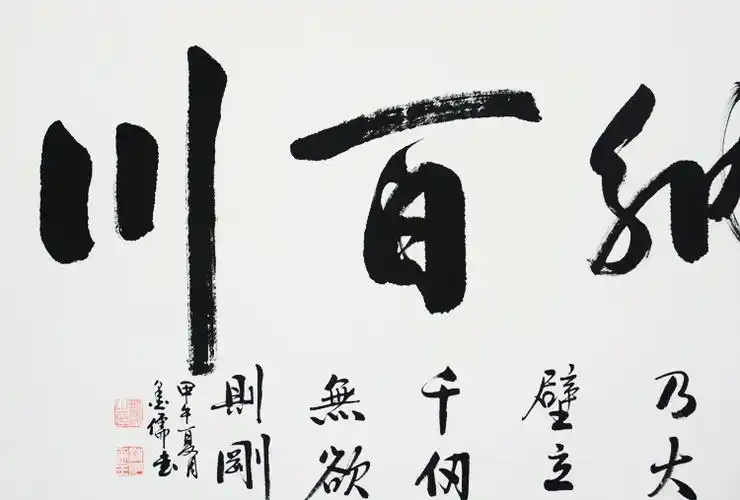 納百川
乃大
壁立
千仞
無欲
則剛
甲午夏月
儒書